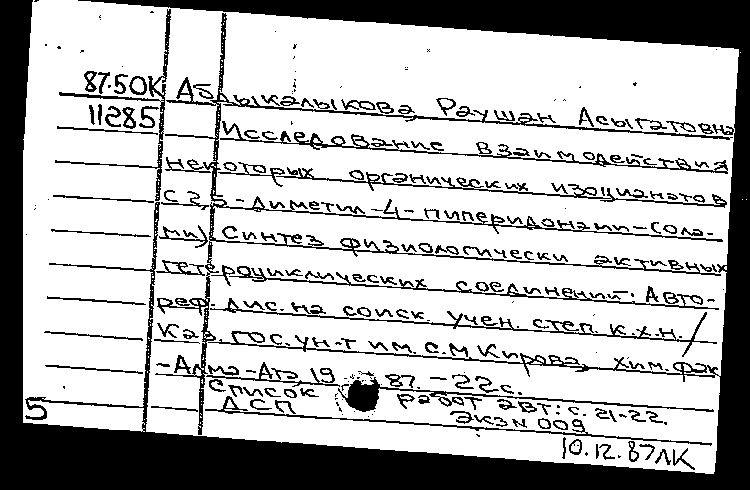 87.50К Абдыкалыкова Раушан Асыгатовна
11285 Исследование взаимодействия
некоторых органических изоцианатов
с 2,5-диметил-4-пиперидонами-(ола-
ми). Синтез физиологически активных
гетероциклических соединений: Авто-
реф. дис. на соиск. учен. степ. к.х.н. /
Каз. гос. ун-т им. С.М Кирова, хим. фак
-Алма-Ата, 1987. -22с.
Список работ авт: с. 21-22.
ДСП экз N 009
5
10.12.87ЛК